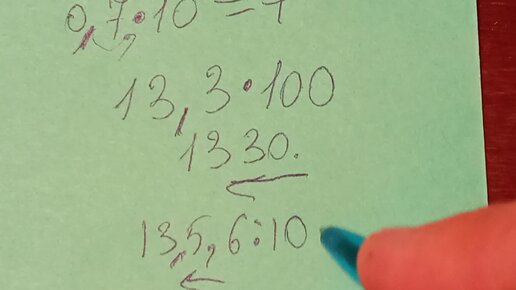 0,7·10=7
13,3·100
1330.
13,5,6:10